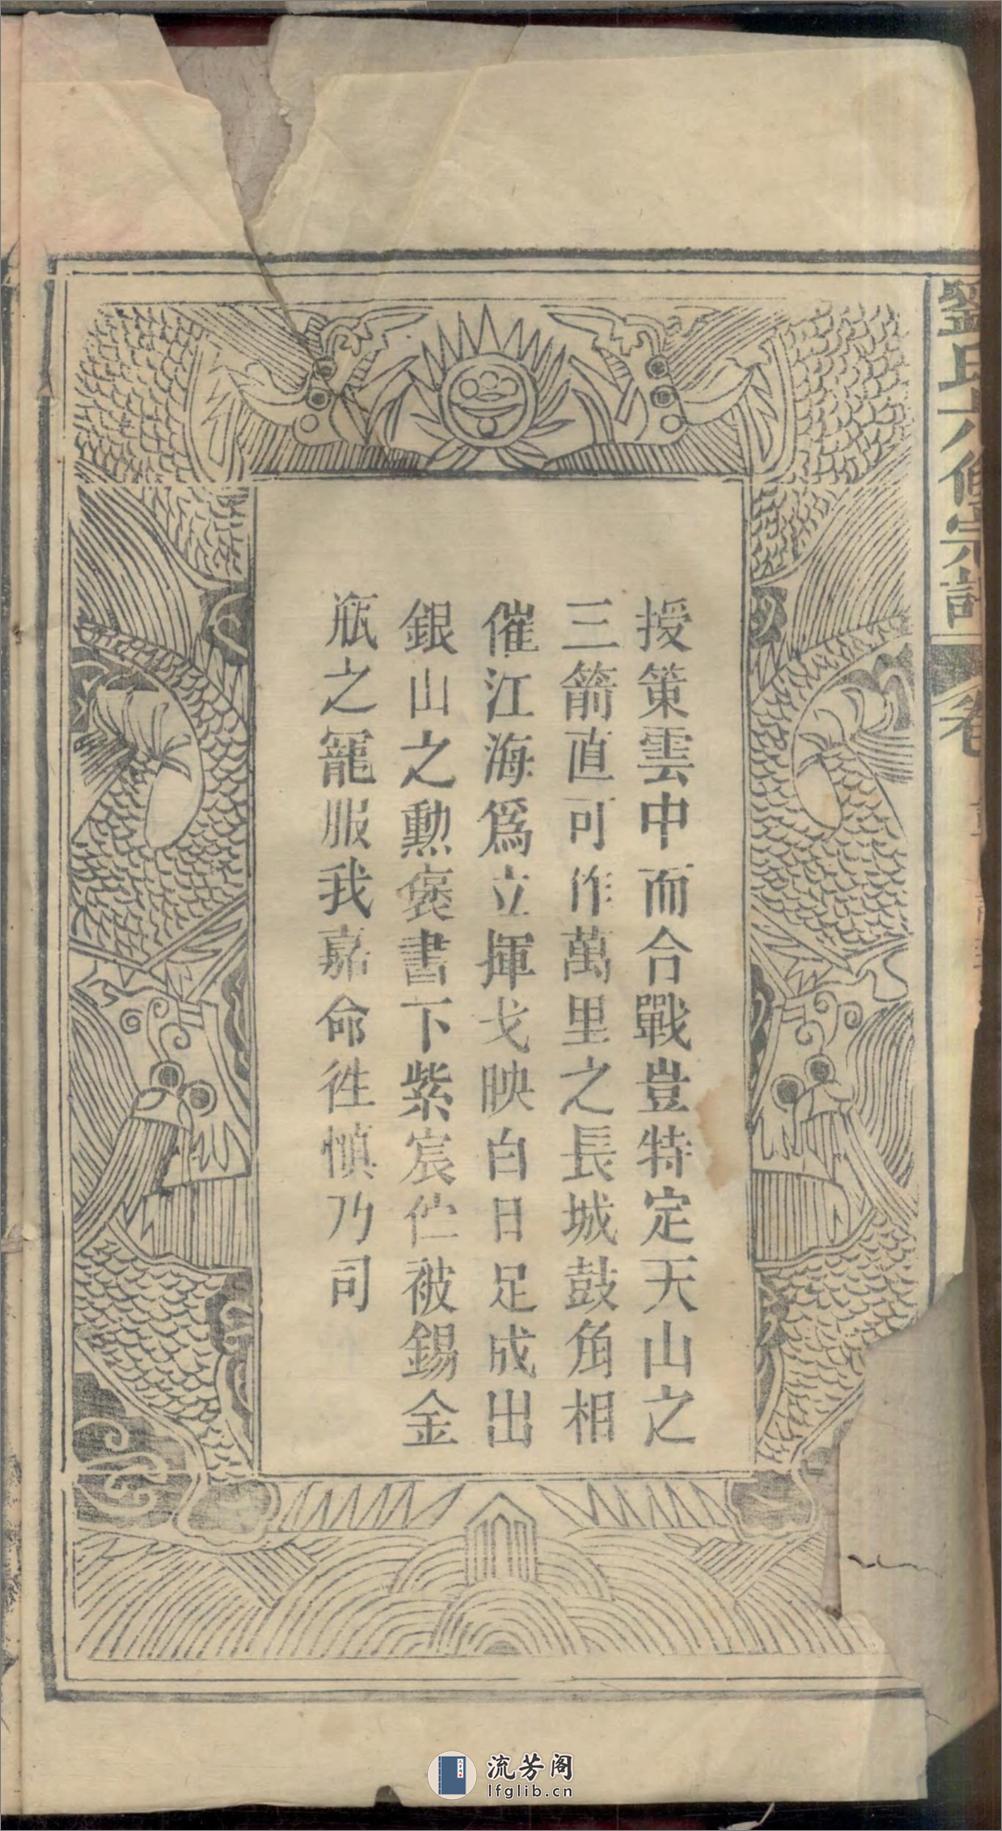 授策雲中而合戰豈特定天山之
三箭直可作萬里之長城鼓角相
催江海為立揮戈映白日足成出
銀山之勲襃書下紫宸伫被錫金
瓶之寵服我嘉命徃慎乃司
劉氏八修宗譜
卷
流芳阁
lfglib.cn